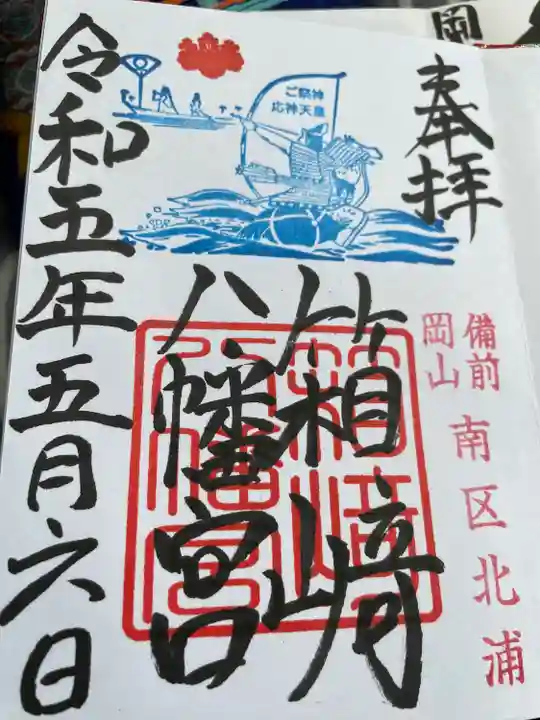 奉拝
備前
岡山
南区北浦
ご祭神
応神天皇
箱崎
八幡宮
箱崎
八幡宮
令和五年五月六日
岡